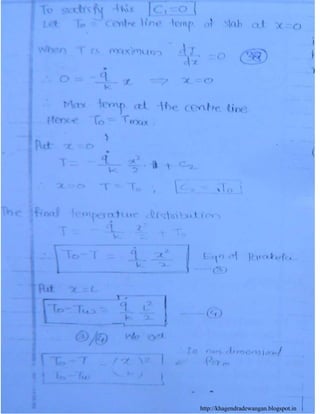 To satisfy this C₁ = 0
Let To = Centre line temp. of slab at x=0
When T is maximum dT/dx = 0
∴ 0 = -q̇/k x ⟹ x=0
∴ Max temp at the centre line
Hence To = Tmax
Put x=0
T = -q̇/k x²/2 + C₂
∴ x=0 T=To, C₂ = To
The final temperature distribution
T = -q̇/k x²/2 + To
∴ To-T = q̇/k x²/2 Eqn of Parabola
③
Put x=L
To-Tw = q̇/k L²/2 ④
③/④ we get
To-T / To-Tw = (x/L)² In non dimensional form
http://khagendradewangan.blogspot.in